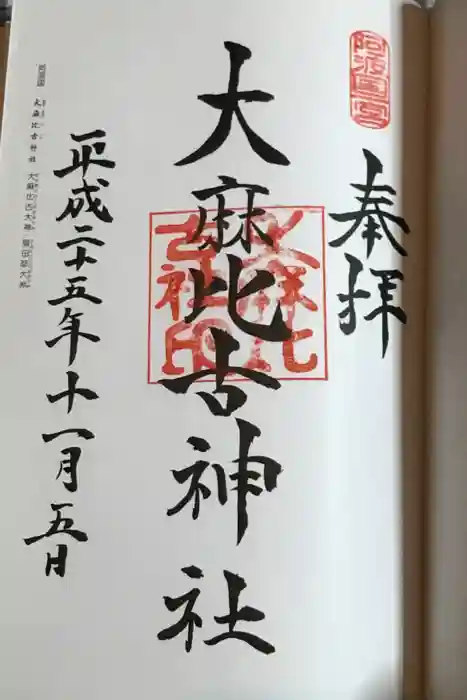 阿波国一宮
奉拝
大麻比古神社
大麻比古神社印
平成二十五年十一月五日
阿波国
大麻比古神社
大麻比古大神 猿田彦大神